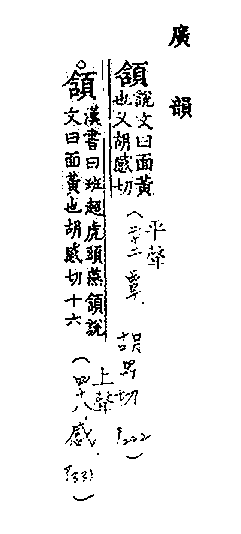 廣韻
頷說文曰面黃
也又胡感切
(平聲
二十二覃.
胡男切
P222)
○頷漢書曰班超虎頭燕頷說
文曰面黃也胡感切十六
(上聲
四十八感.
P331)